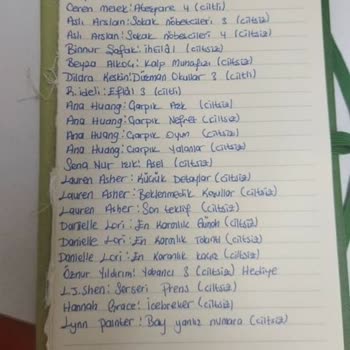 Ceren Melek: Ateşpare 4 (ciltli)
Aslı Arslan: Sokak nöbetcileri 3 (ciltsiz)
Aslı Arslan: Sokak nöbetcileri 4 (ciltsiz)
Binnur Şafak: İhtilal (ciltsiz)
Beyza Alkoç: Kalp Münafığı (ciltsiz)
Dilara Keskin: Düşman Okullar 3 (ciltli)
R. ideli: Eflal 3 (ciltli)
Ana Huang: Çarpık Aşk (ciltsiz)
Ana Huang: Çarpık Nefret (ciltsiz)
Ana Huang: Çarpık Oyun (ciltsiz)
Ana Huang: Çarpık Yalanlar (ciltsiz)
Sena Nur Işık: Asel (ciltsiz)
Lauren Asher: Küçük Detaylar (ciltsiz)
Lauren Asher: Beklenmedik Koşullar (ciltsiz)
Lauren Asher: Son teklif (ciltsiz)
Danielle Lori: En Karanlık Günah (ciltsiz)
Danielle Lori: En Karanlık Takıntı (ciltsiz)
Danielle Lori: En Karanlık kaçış (ciltsiz)
Öznur Yıldırım: Yabancı 3 (ciltsiz) Hediye
L.J. Shen: Serseri Prens (ciltsiz)
Hannah Grace: Icebreker (ciltsiz)
Lynn painter: Bay yanlış numara (ciltsiz)